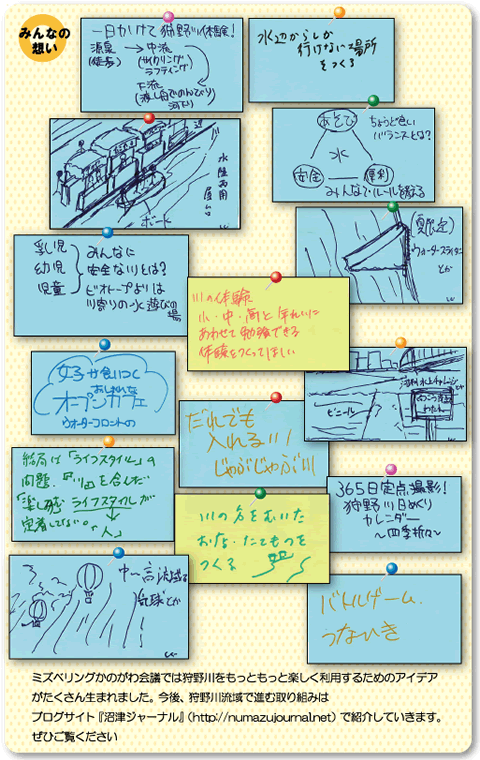 みんなの
想い
一日かけて狩野川体験!
源泉 → 中流
(徒歩) (サイクリング
ラフティング)
下流
(渡し舟でのんびり
河下り)
水辺からしか
行けない場所
をつくる
水陸両用
屋台
ボート
あそび
ちょうど良い
バランスとは?
水
安全
便利
みんなでルールを考える
乳児
幼児
児童
みんなに
安全な川とは?
ビオトープよりは
川寄りの水遊びの
場
(夏限定)
ウォータースライダー
とか
川の体験
小・中・高と年れいに
あわせて勉強できる
体験をつくってほしい
女子が食いつく
おしゃれな
オープンカフェ
ウォーターフロントの
だれでも
入れる川
じゃぶじゃぶ川
ビニール
結局は「ライフスタイル」の
問題。『川』を含んだ
「楽し感」ライフスタイルが
定着してない。
人」
川の方をむいた
おみせ・たてもつを
つくる
365日定点撮影!
狩野川日めくり
カレンダー
〜四季折々〜
中〜高流域
気球とか
バトルゲーム
つなひき
ミズベリングかのがわ会議では狩野川をもっともっと楽しく利用するためのアイデア
がたくさん生まれました。今後、狩野川流域で進む取り組みは
ブログサイト『沼津ジャーナル』(http://numazujournal.net)で紹介していきます。
ぜひご覧ください